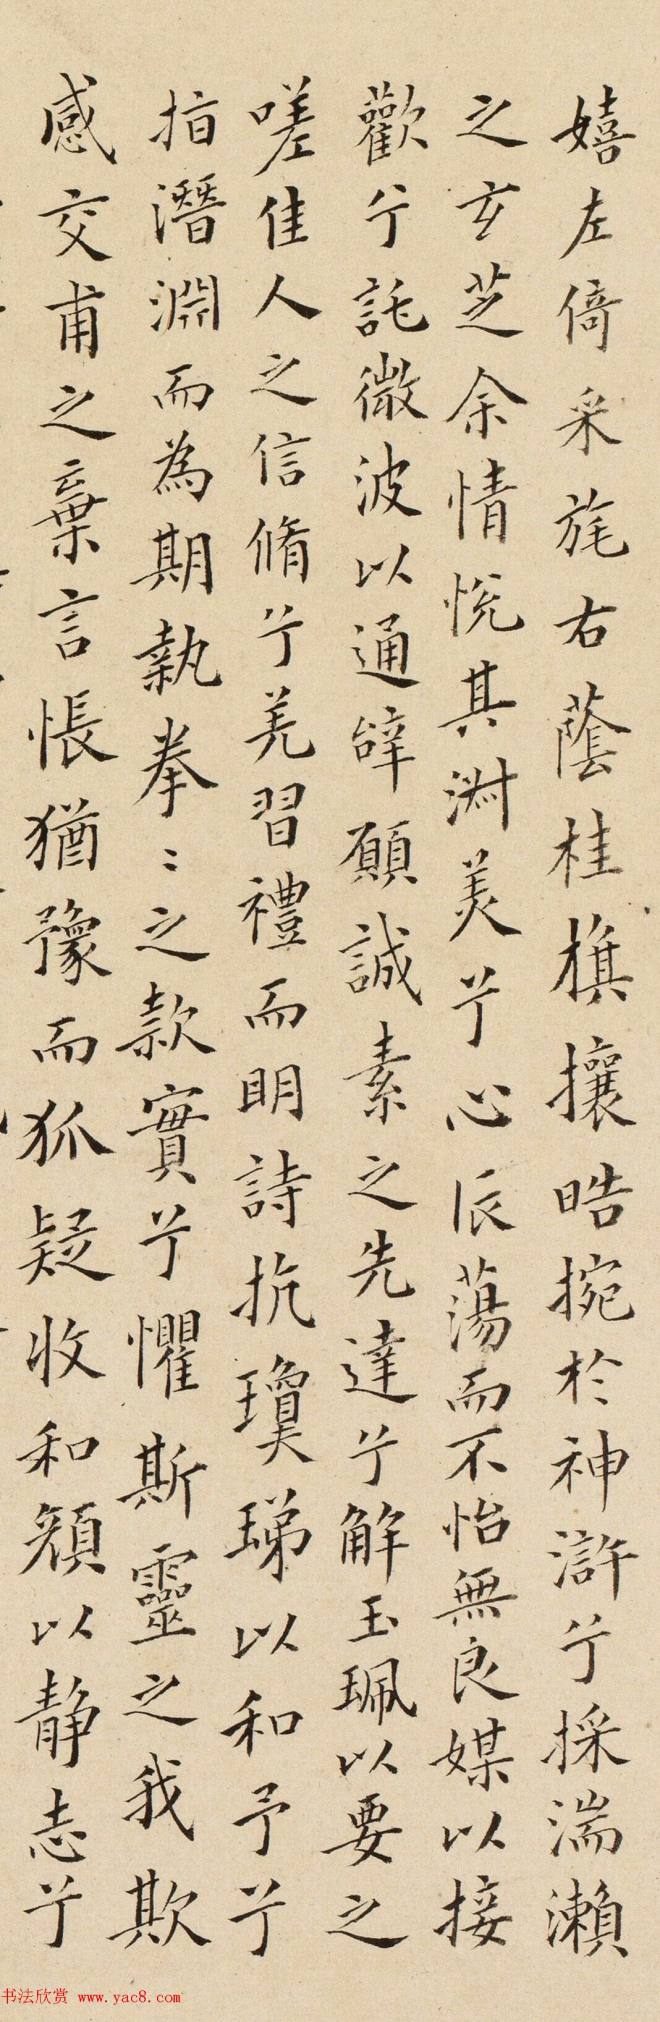 嬉左倚采旄右蔭桂旗攘皓捥於神滸兮採湍瀨
之玄芝余情悅其淑美兮心辰蕩而不怡無良媒以接
歡兮託微波以通辭願誠素之先達兮解玉珮以要之
嗟佳人之信脩兮羌習禮而明詩抗瓊珶以和予兮
指潛淵而為期執拳〻之款實兮懼斯靈之我欺
感交甫之棄言悵猶豫而狐疑收和顏以靜志兮
书法欣赏 www.yac8.com